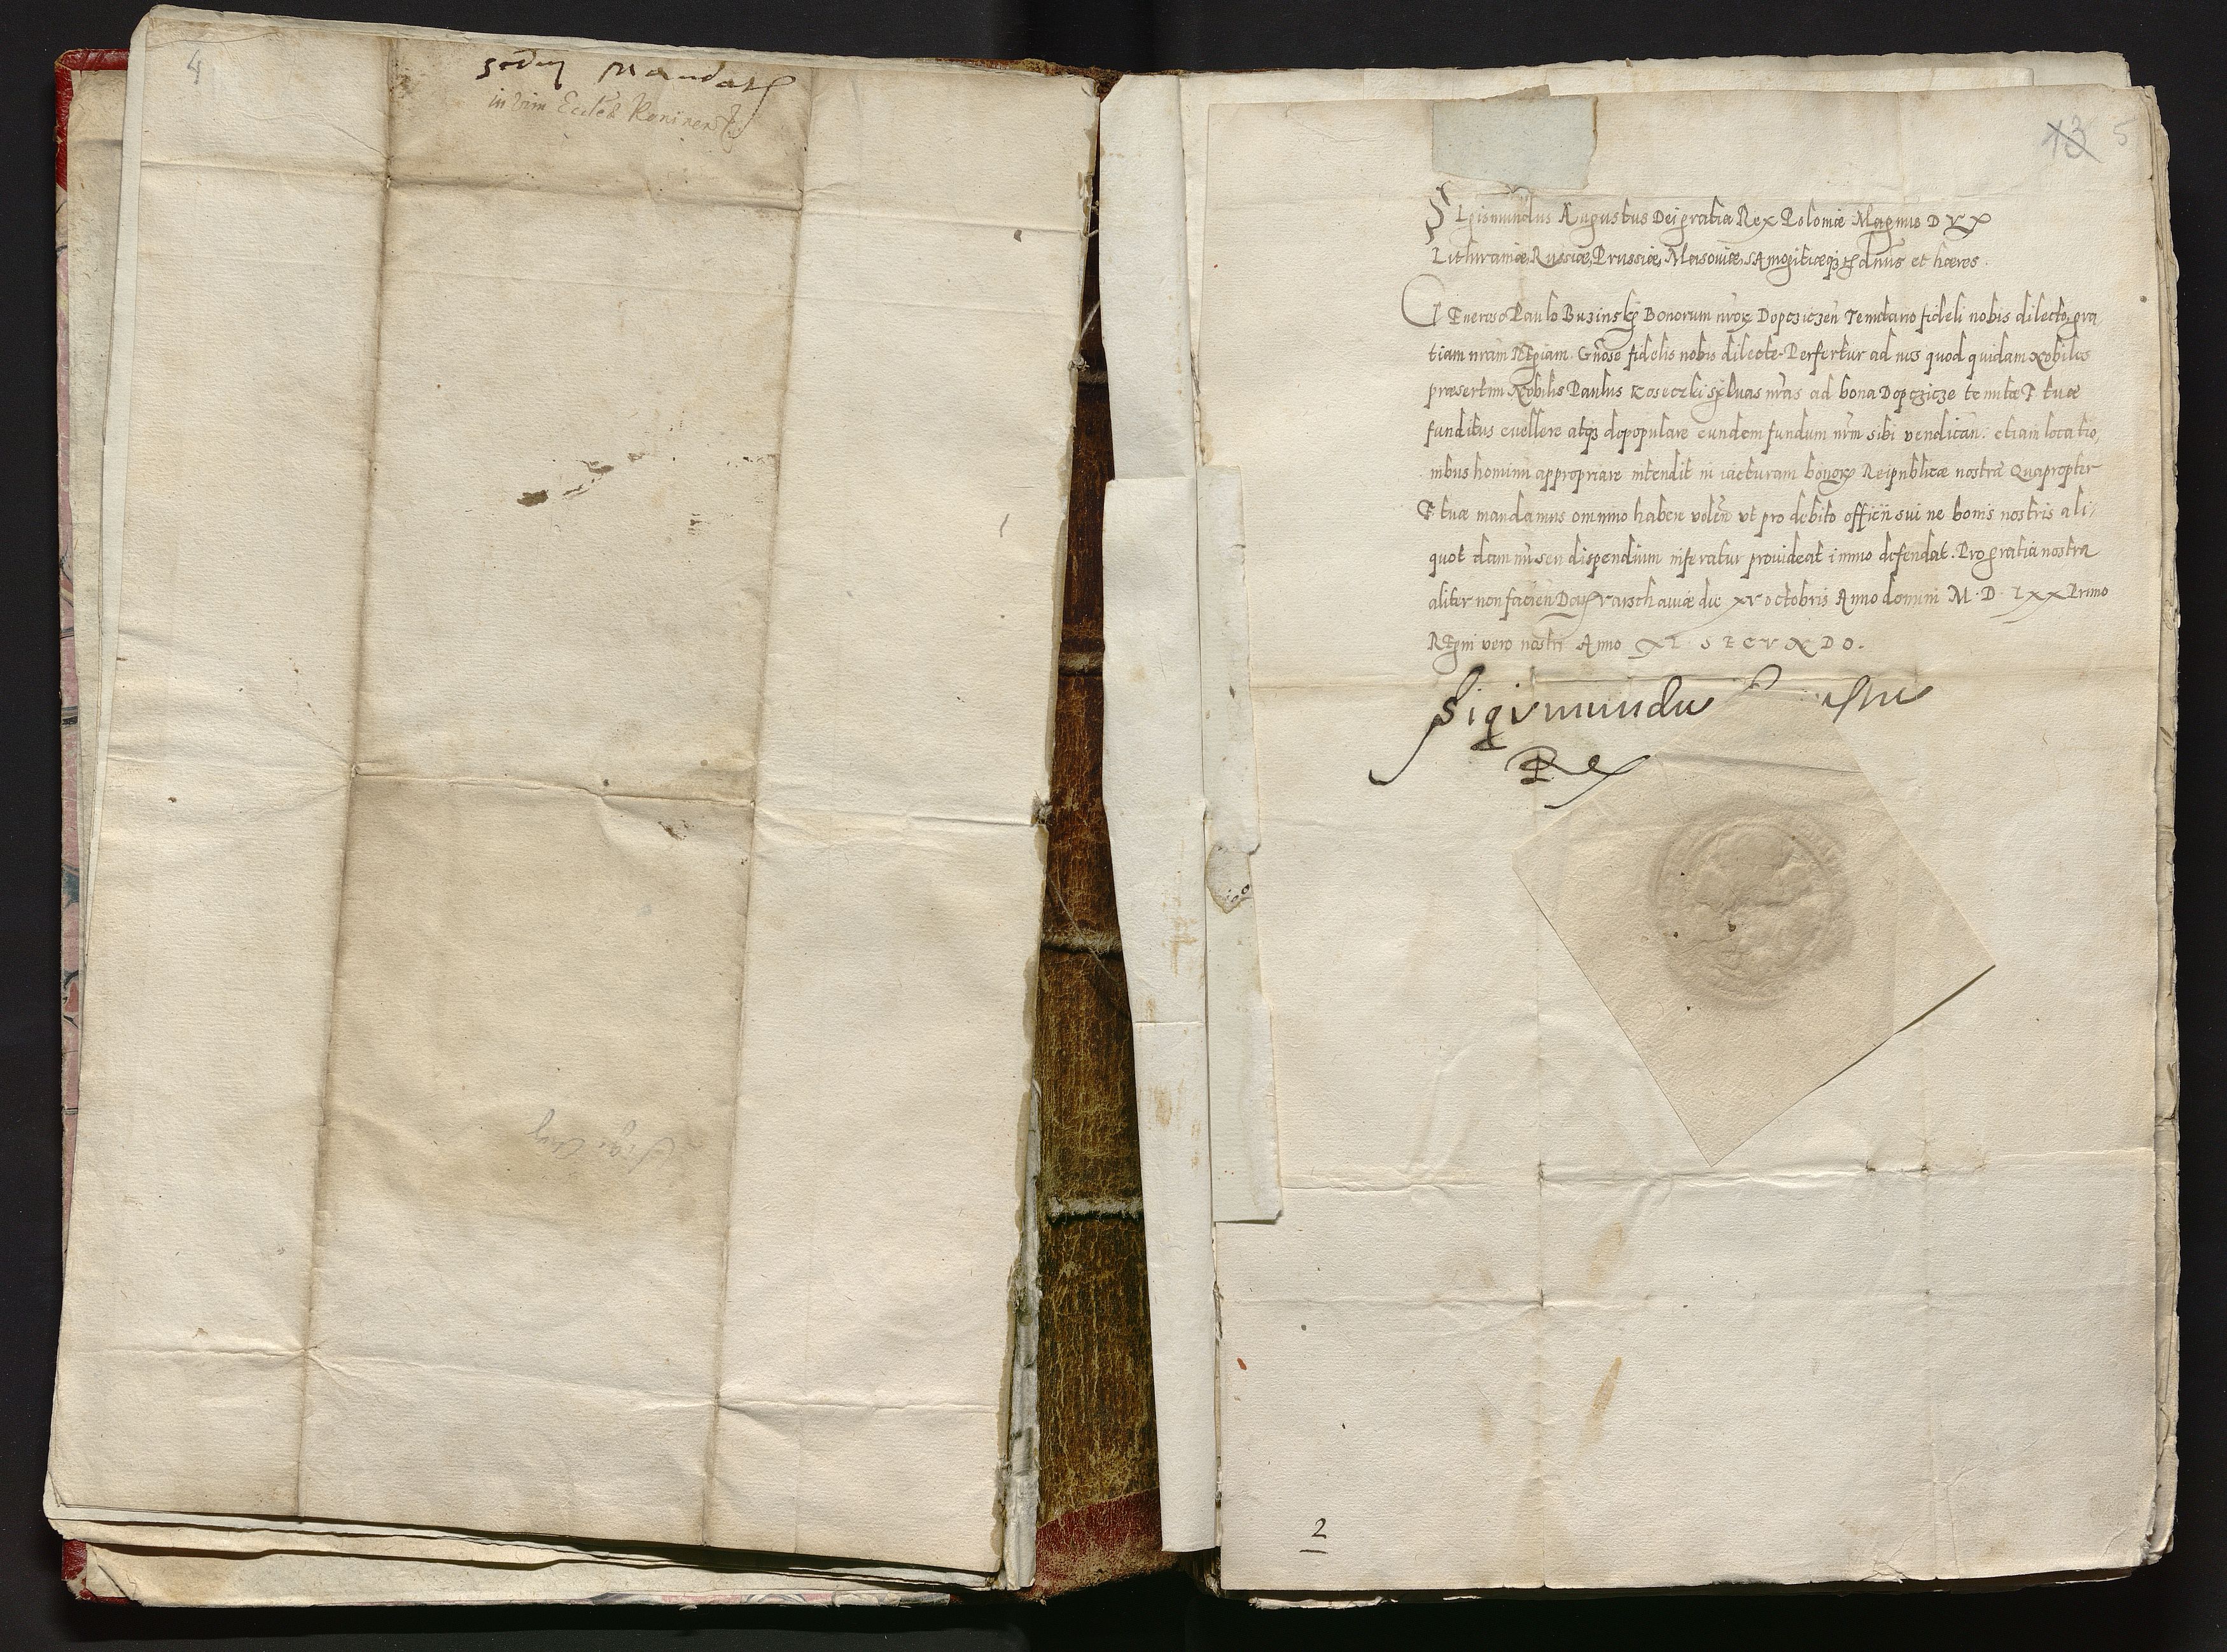 4
mandat
in vim Eccles
Sigi Aug
13 5
SIgismundus Augustus Dei gratia Rex Poloniæ Magnus DVX
Lithuaniæ, Russiæ, Prussiæ, Masouiæ, SAmogitiæqȝ dnus et hæres.
GEneroso Paulo Buzinsky Bonorum nror Dopczicȝen Tenutario fideli nobis dilecto, gra
tiam nram REgiam. Gnose fidelis nobis dilecte. Perfertur ad nos quod quidam Nobiles
præsertim Nobilis Paulus syluas nras ad bona Dopcziczε tenutæ F tuæ
funditus euellere atqȝ depopulare eundem fundum nrm sibi vendican: etiam locatio,
nibus hominu appropriare intendit in iacturam bonor Reipublicæ nostræ Quapropter
F tuæ mandamus omnino habere volen vt pro debito officii sui ne bonis nostris ali,
quot damnu seu dispendium inferatur prouideat immo defendat. Pro gratia nostra
aliter non facien Dat varschauiæ die xv octobris Anno domini M. D. LXX Primo
REgni vero nostri Anno XL SECVNDO.
Sigismundus
Rex
2